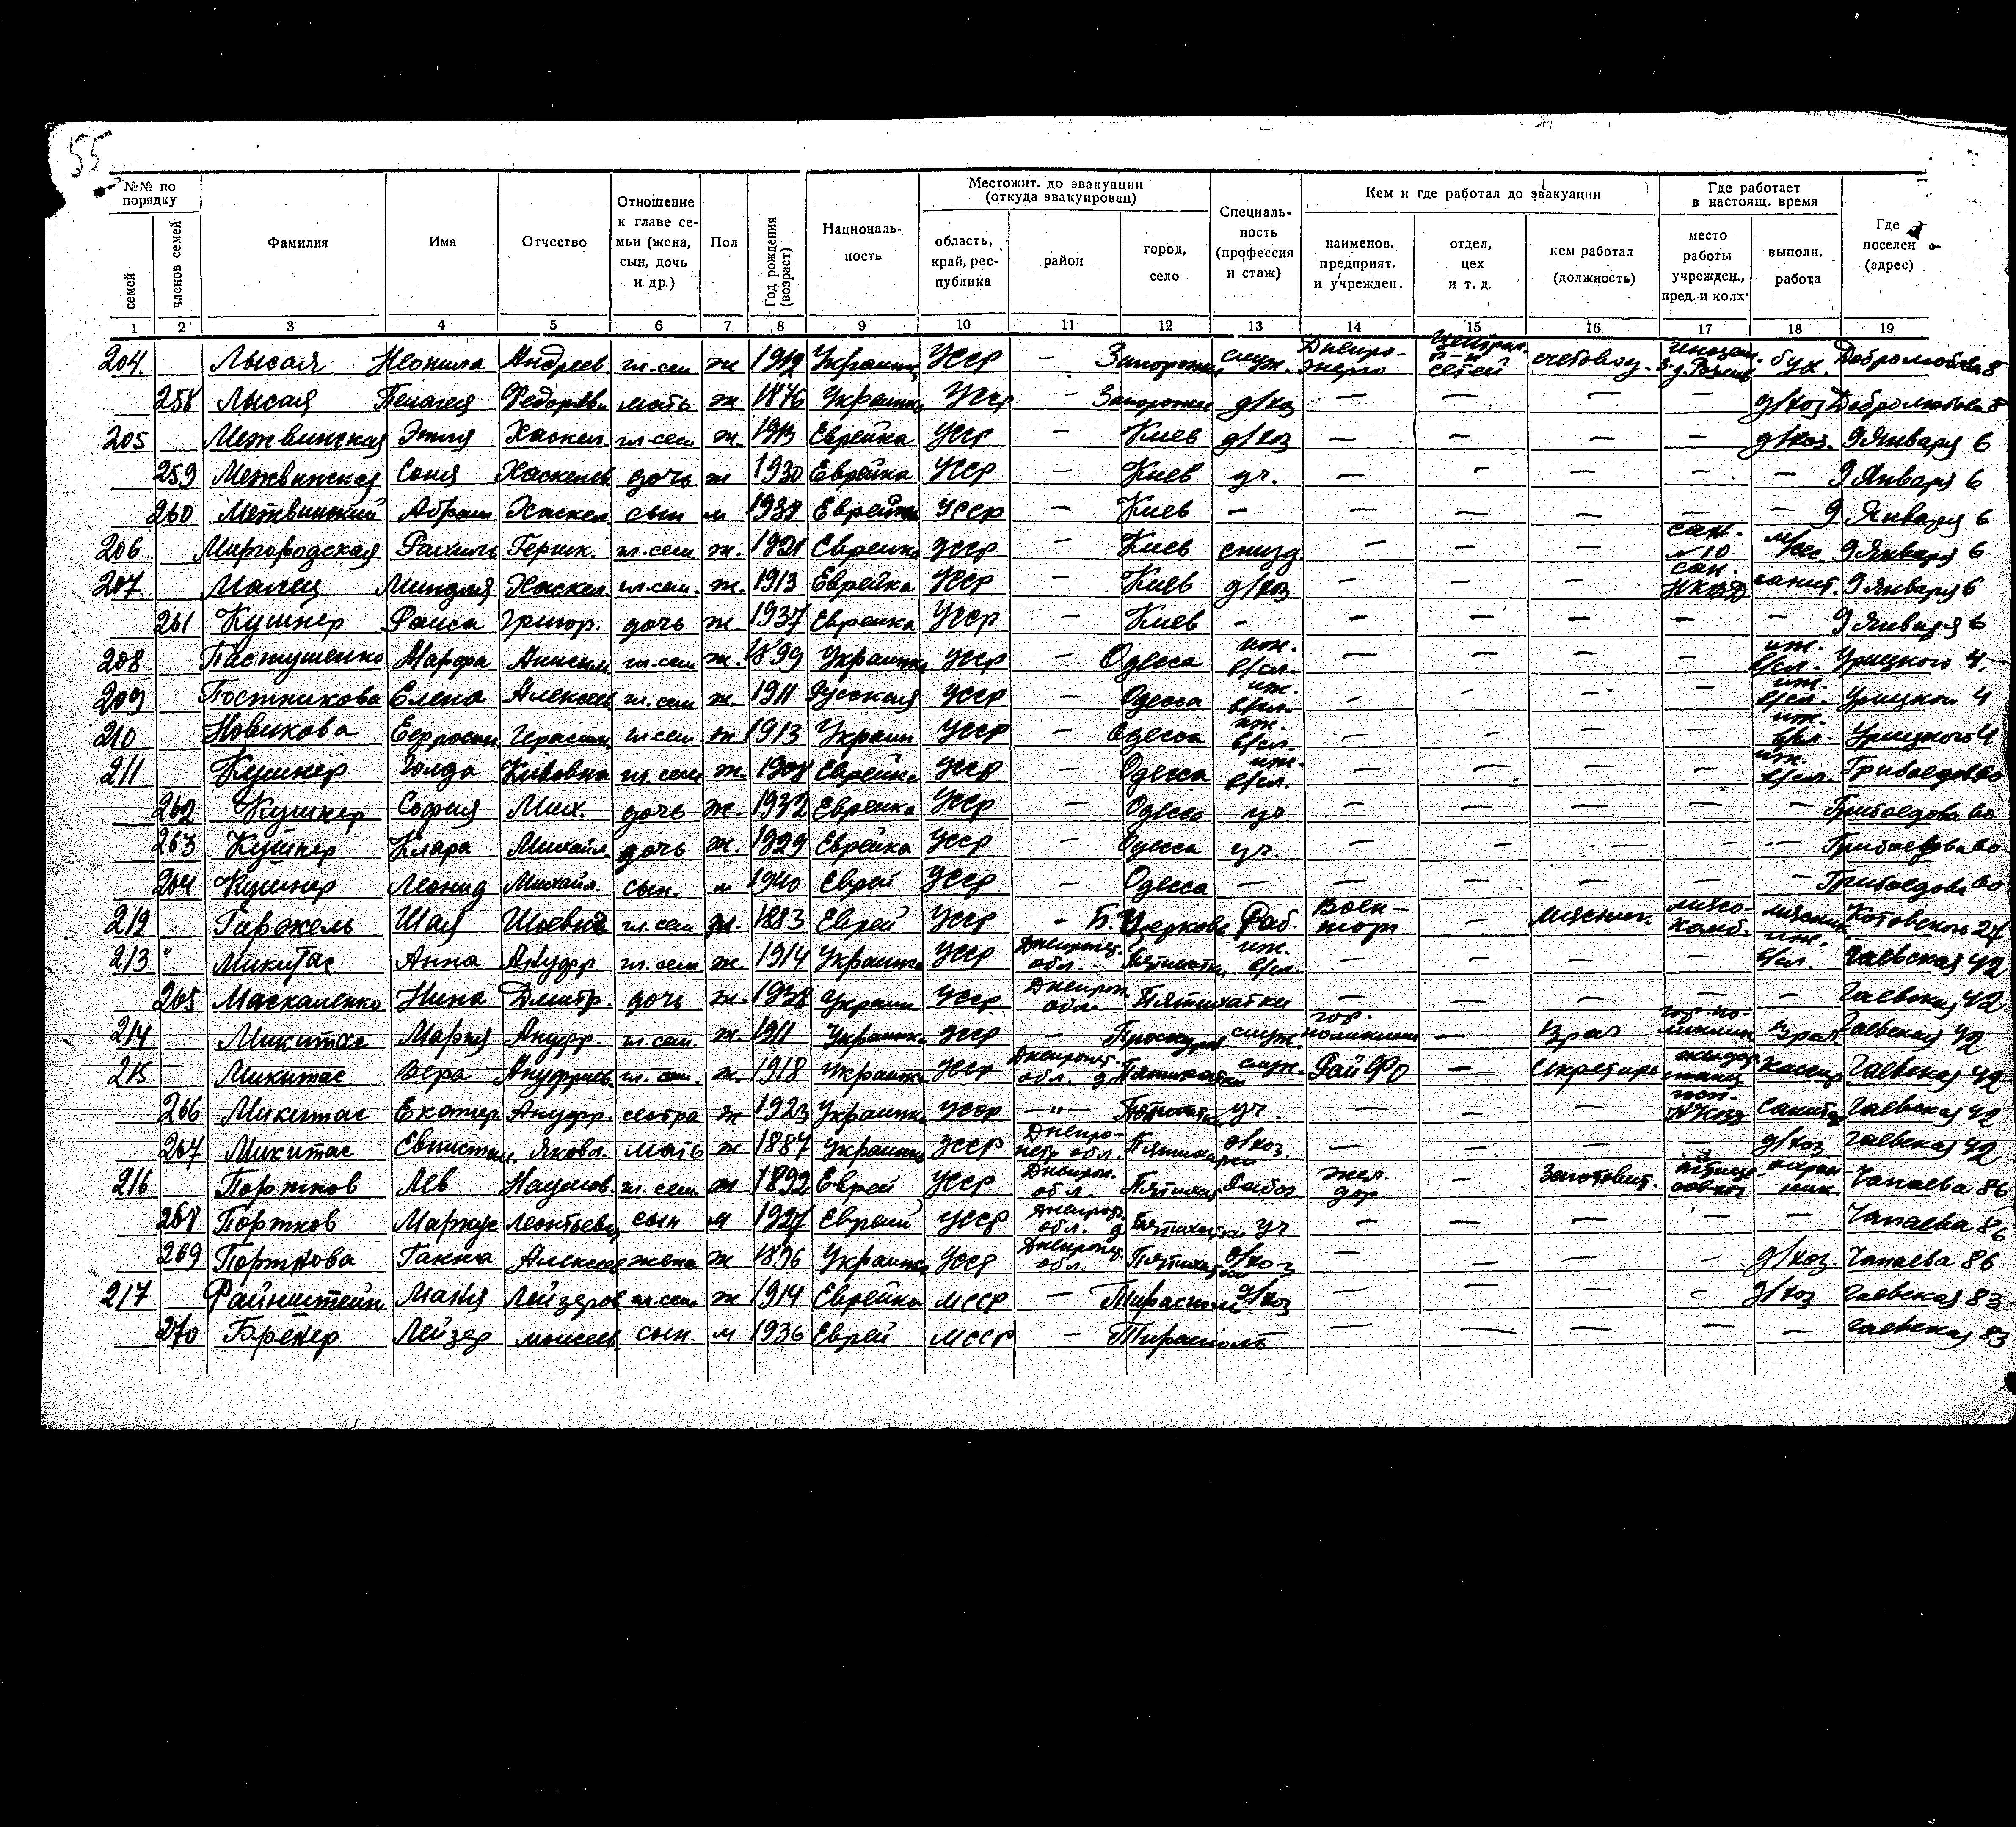 55
№№ по порядку
Фамилия Имя Отчество Отношение к главе семьи (жена, сын, дочь и др.) Пол Год рождения (возраст) Националь-ность Местожит. до эвакуации (откуда эвакуирован) Специаль-ность (профессия и стаж) Кем и где работал до эвакуации Где работает в настоящ. время Где поселен (адрес)
семей членов семей область, край, рес-публика район город, село наименов. предприят. и учрежден. отдел, цех и т. д. кем работал (должность) место работы учрежден., пред. и колх. выполн. работа
1 2 3 4 5 6 7 8 9 10 11 12 13 14 15 16 17 18 19
204. Лысая Неонила Андреев. гл. сем ж Украинка УССР — Запорожье служ. Днепро-энерго сетей счетовод. бух. Добролюбова 8
258 Лысая Пелагея Федоровн мать ж 1876 Украинка УССР — Запорожье д/хоз — — — — д/хоз Добролюбова 8
205 Межвинская Этля Хаскел. гл. сем ж. 1913 Еврейка УССР — Киев д/хоз — — — — д/хоз. 9 Января 6
259 Межвинская Соня Хаскелев дочь ж 1930 Еврейка УССР — Киев уч. — — — — — 9 Января 6
260 Межвинский Абрам Хаскел. сын м 1938 УССР — Киев — — — — — — 9 Января 6
206 Миргородская Рахиль Гершк. гл. сем ж. 1921 Еврейка УССР — Киев — — — сан. №10 м/сес. 9 Января 6
207. Малец Миндля Хаскел. гл. сем. ж. 1913 Еврейка УССР — Киев д/хоз — — — сан. санит. 9 Января 6
261 Кушнер Раиса Григор. дочь ж. 1937 Еврейка УССР — Киев — — — — — — 9 Января 6
208 Пастушенко Марфа Анисим гл. сем ж. 1899 Украинка УССР — Одесса иж. в/сл. — — — — иж. в/сл. Урицкого 4.
209 Постникова Елена Алексеев гл. сем ж. 1911 Русская УССР — Одесса иж. в/сл. — — — — иж. в/сл. 4
210 Новикова Ефросин. Герасим. гл. сем ж 1913 Украин УССР — Одесса иж. в/сл. — — — — иж. в/сл. Урицкого 4
211 Кушнер Голда гл. сем ж. 1908 Еврейка УССР — Одесса иж. в/сл. — — — — иж. в/сл. Грибоедова 60
262 Кушнер София Мих. дочь ж. 1932 Еврейка УССР — Одесса уч — — — — — Грибоедова 60
263 Кушнер Клара Михайл. дочь ж. 1929 Еврейка УССР — Одесса уч. — — — — — Грибоедова 60.
264 Кушнер Леонид Михайл. сын. м 1940 Еврей УССР — Одесса — — — — — — Грибоедова 60
212 Гиржель Шая Шоевич гл. сем 1883 Еврей УССР — Б. Церковь Раб. Воен-торг — Мясник. мясо-комб. мясник Котовского 27
213 " Микитас Анна Ануфр гл. сем ж. 1914 Украинка УССР Днепропет. обл. Пятихатки иж. в/сл. — — — — иж. в/сл. Гаевская 42
265 Маскаленко Нина Дмитр. дочь ж. 1938 Украин УССР Днепроп. обл. Пятихатки — — — — — Гаевская 42
214 Микитас Мария Ануфр. гл. сем. ж. 1911 Украинка УССР — Проскуров служ. гор. поликлин — Врач гор. по-ликлин Врач Гаевская 42
215 Микитас Вера Ануфриев. гл. сем. ж. 1918 Украинка УССР Днепропет. обл. Пятихатки служ. РайФО — Секретарь кассир Гаевская 42
266 Микитас Екатер. Ануфр. сестра ж 1923 Украинка УССР — " — Пятихатки уч. — — — госп. Санитар Гаевская 42
267 Микитас Яковл. мать ж 1887 Украинка УССР Днепро-петр обл. Пятихатки д/хоз. — — — — д/хоз Гаевская 42
216 Портнов Лев Наумов. гл. сем м 1892 Еврей УССР Днепроп. обл. Пятихат жел. дор — Заготовит. Чапаева 86
268 Портнов Маркус Леонтьевич сын м 1927 Еврей УССР Днепроп. обл. Пятихатки уч — — — — — Чапаева 86
269 Портнова Ганна Алексеев жена ж 1896 Украинка УССР Днепропет. обл. Пятихатки д/хоз — — — — д/хоз. Чапаева 86
217 Файнштейн Маня Лейзеров гл. сем ж 1914 Еврейка МССР — Тирасполь д/хоз — — — — д/хоз Гаевская 83
270 Бренер Лейзер моисеев. сын м 1936 Еврей МССР — Тирасполь — — — — — Гаевская 83